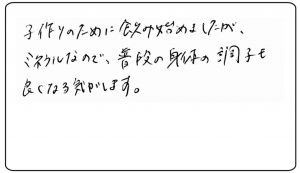 子作りのために飲み始めましたが、
ミネラルなので、普段の身体の調子も
良くなる気がします。